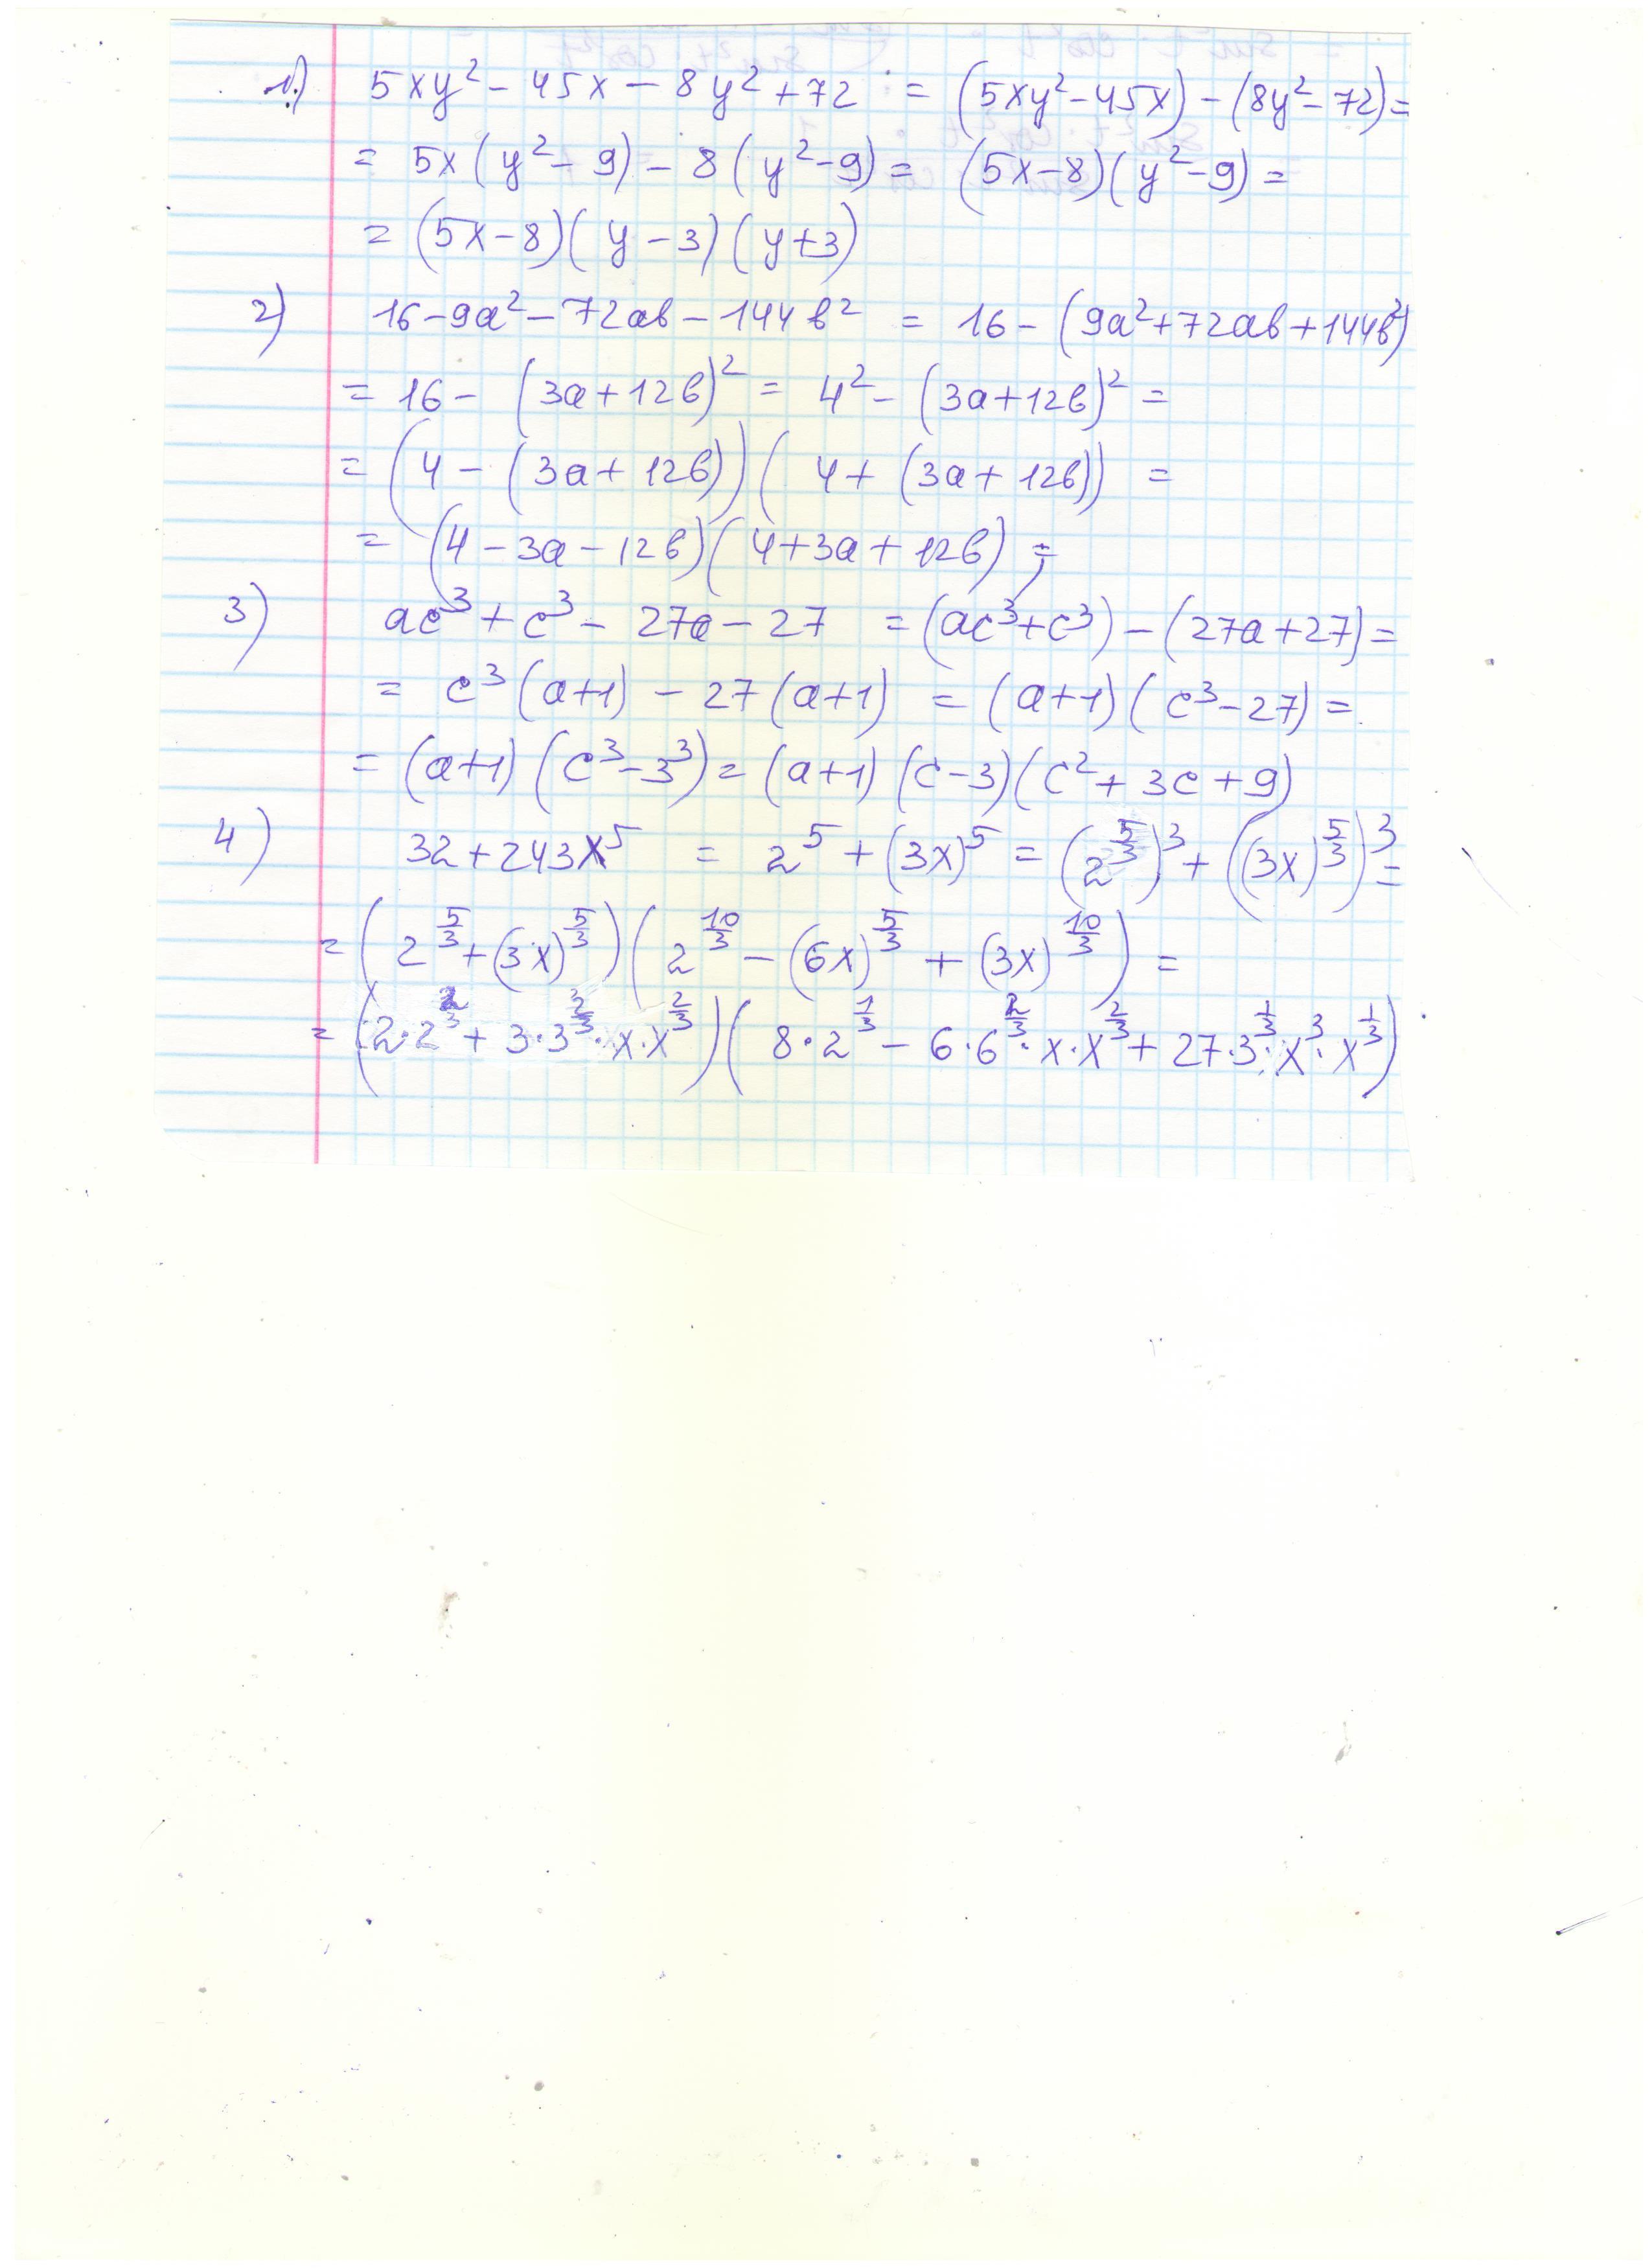 1) 5xy² - 45x - 8y² + 72 = (5xy² - 45x) - (8y² - 72) =
= 5x(y² - 9) - 8(y² - 9) = (5x - 8)(y² - 9) =
= (5x - 8)(y - 3)(y + 3)
2) 16 - 9a² - 72ab - 144b² = 16 - (9a² + 72ab + 144b²)
= 16 - (3a + 12b)² = 4² - (3a + 12b)² =
= (4 - (3a + 12b))(4 + (3a + 12b)) =
= (4 - 3a - 12b)(4 + 3a + 12b) ;
3) ac³ + c³ - 27a - 27 = (ac³ + c³) - (27a + 27) =
= c³(a+1) - 27(a+1) = (a+1)(c³ - 27) =
= (a+1)(c³ - 3³) = (a+1)(c - 3)(c² + 3c + 9)
4) 32 + 243x⁵ = 2⁵ + (3x)⁵ = (2^(5/3))³ + ((3x)^(5/3))³ =
= (2^(5/3) + (3x)^(5/3))(2^(10/3) - (6x)^(5/3) + (3x)^(10/3)) =
= (2·2^(2/3) + 3·3^(2/3)·x·x^(2/3))(8·2^(1/3) - 6·6^(2/3)·x·x^(2/3) + 27·3^(1/3)·x³·x^(1/3))